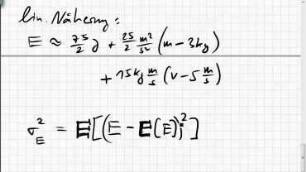 lin. Näherung:
E ≈ 75/2 J + 25/2 m²/s² (m - 3kg)
+ 15kg m/s (v - 5 m/s)
σ_E² = E[(E - E(E))²]